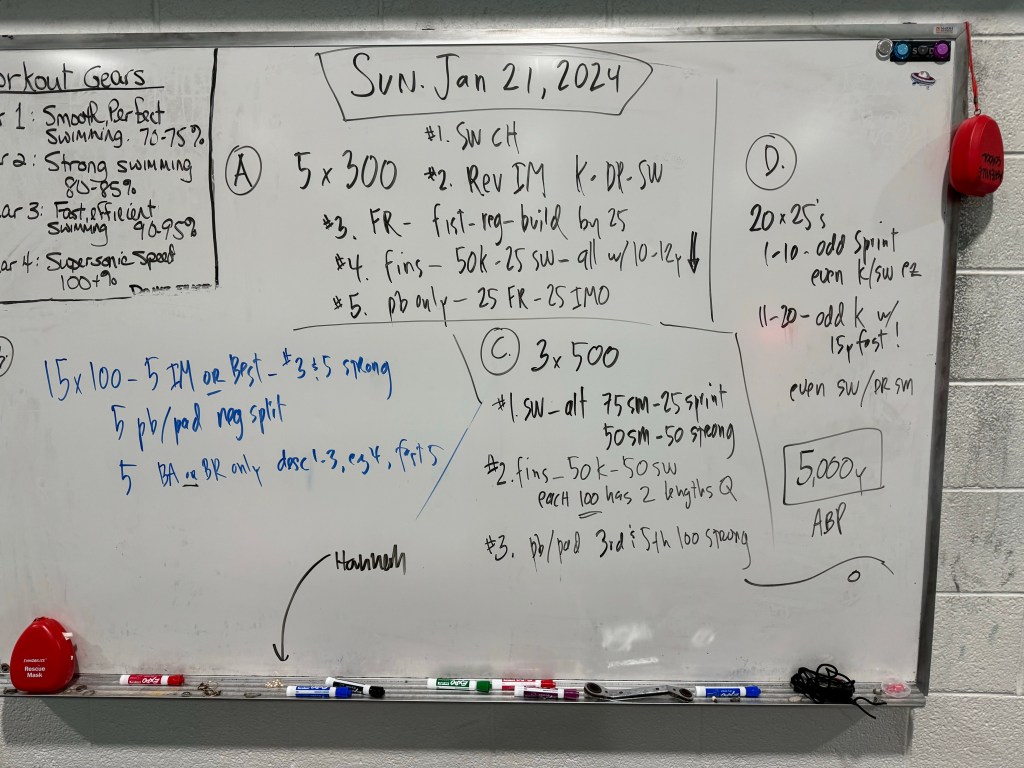 orkout Gears
r 1: Smooth, Perfect
swimming. 70-75%
r 2: Strong swimming
80-85%
ar 3: Fast, efficient
swimming 90-95%
ar 4: Supersonic Speed
100+%
Do Not Erase
Sun. Jan 21, 2024
A 5 x 300 #1. SW CH
#2. Rev IM K-DR-SW
#3. FR- fist-reg-build by 25
#4. fins- 50k-25 sw- all w/10-12y ↓
#5. pb only - 25 FR-25 IMO
15 x 100 - 5 IM OR Best - #3 & 5 strong
5 pb/pad neg split
5 BA or BR only desc 1-3, ez 4, fast 5
C. 3 x 500
#1. sw- alt 75 sm-25 sprint
50 sm-50 strong
#2. fins-50k-50 sw
each 100 has 2 lengths Q
#3. pb/pad 3rd & 5th 100 strong
D.
20 x 25's
1-10-odd sprint
even k/sw ez
11-20-odd k w/
15y fast!
even sw/DR sm
5,000y
ABP
Hannah
Rescue
Mask
EXPO